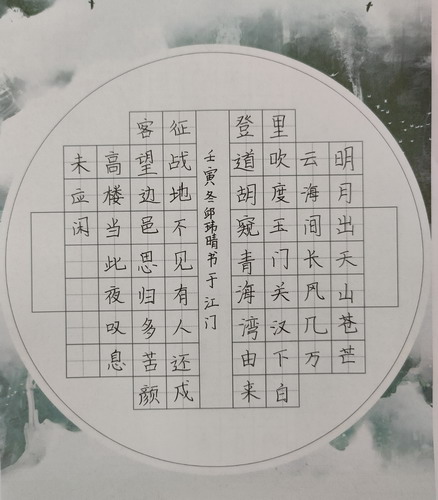 明月出天山苍芒
云海间长风几万
里吹度玉门关汉下白
登道胡窥青海湾由来
壬寅冬邱玮晴书于江门
征战地不见有人还戍
客望边邑思归多苦颜
高楼当此夜叹息
未应闲